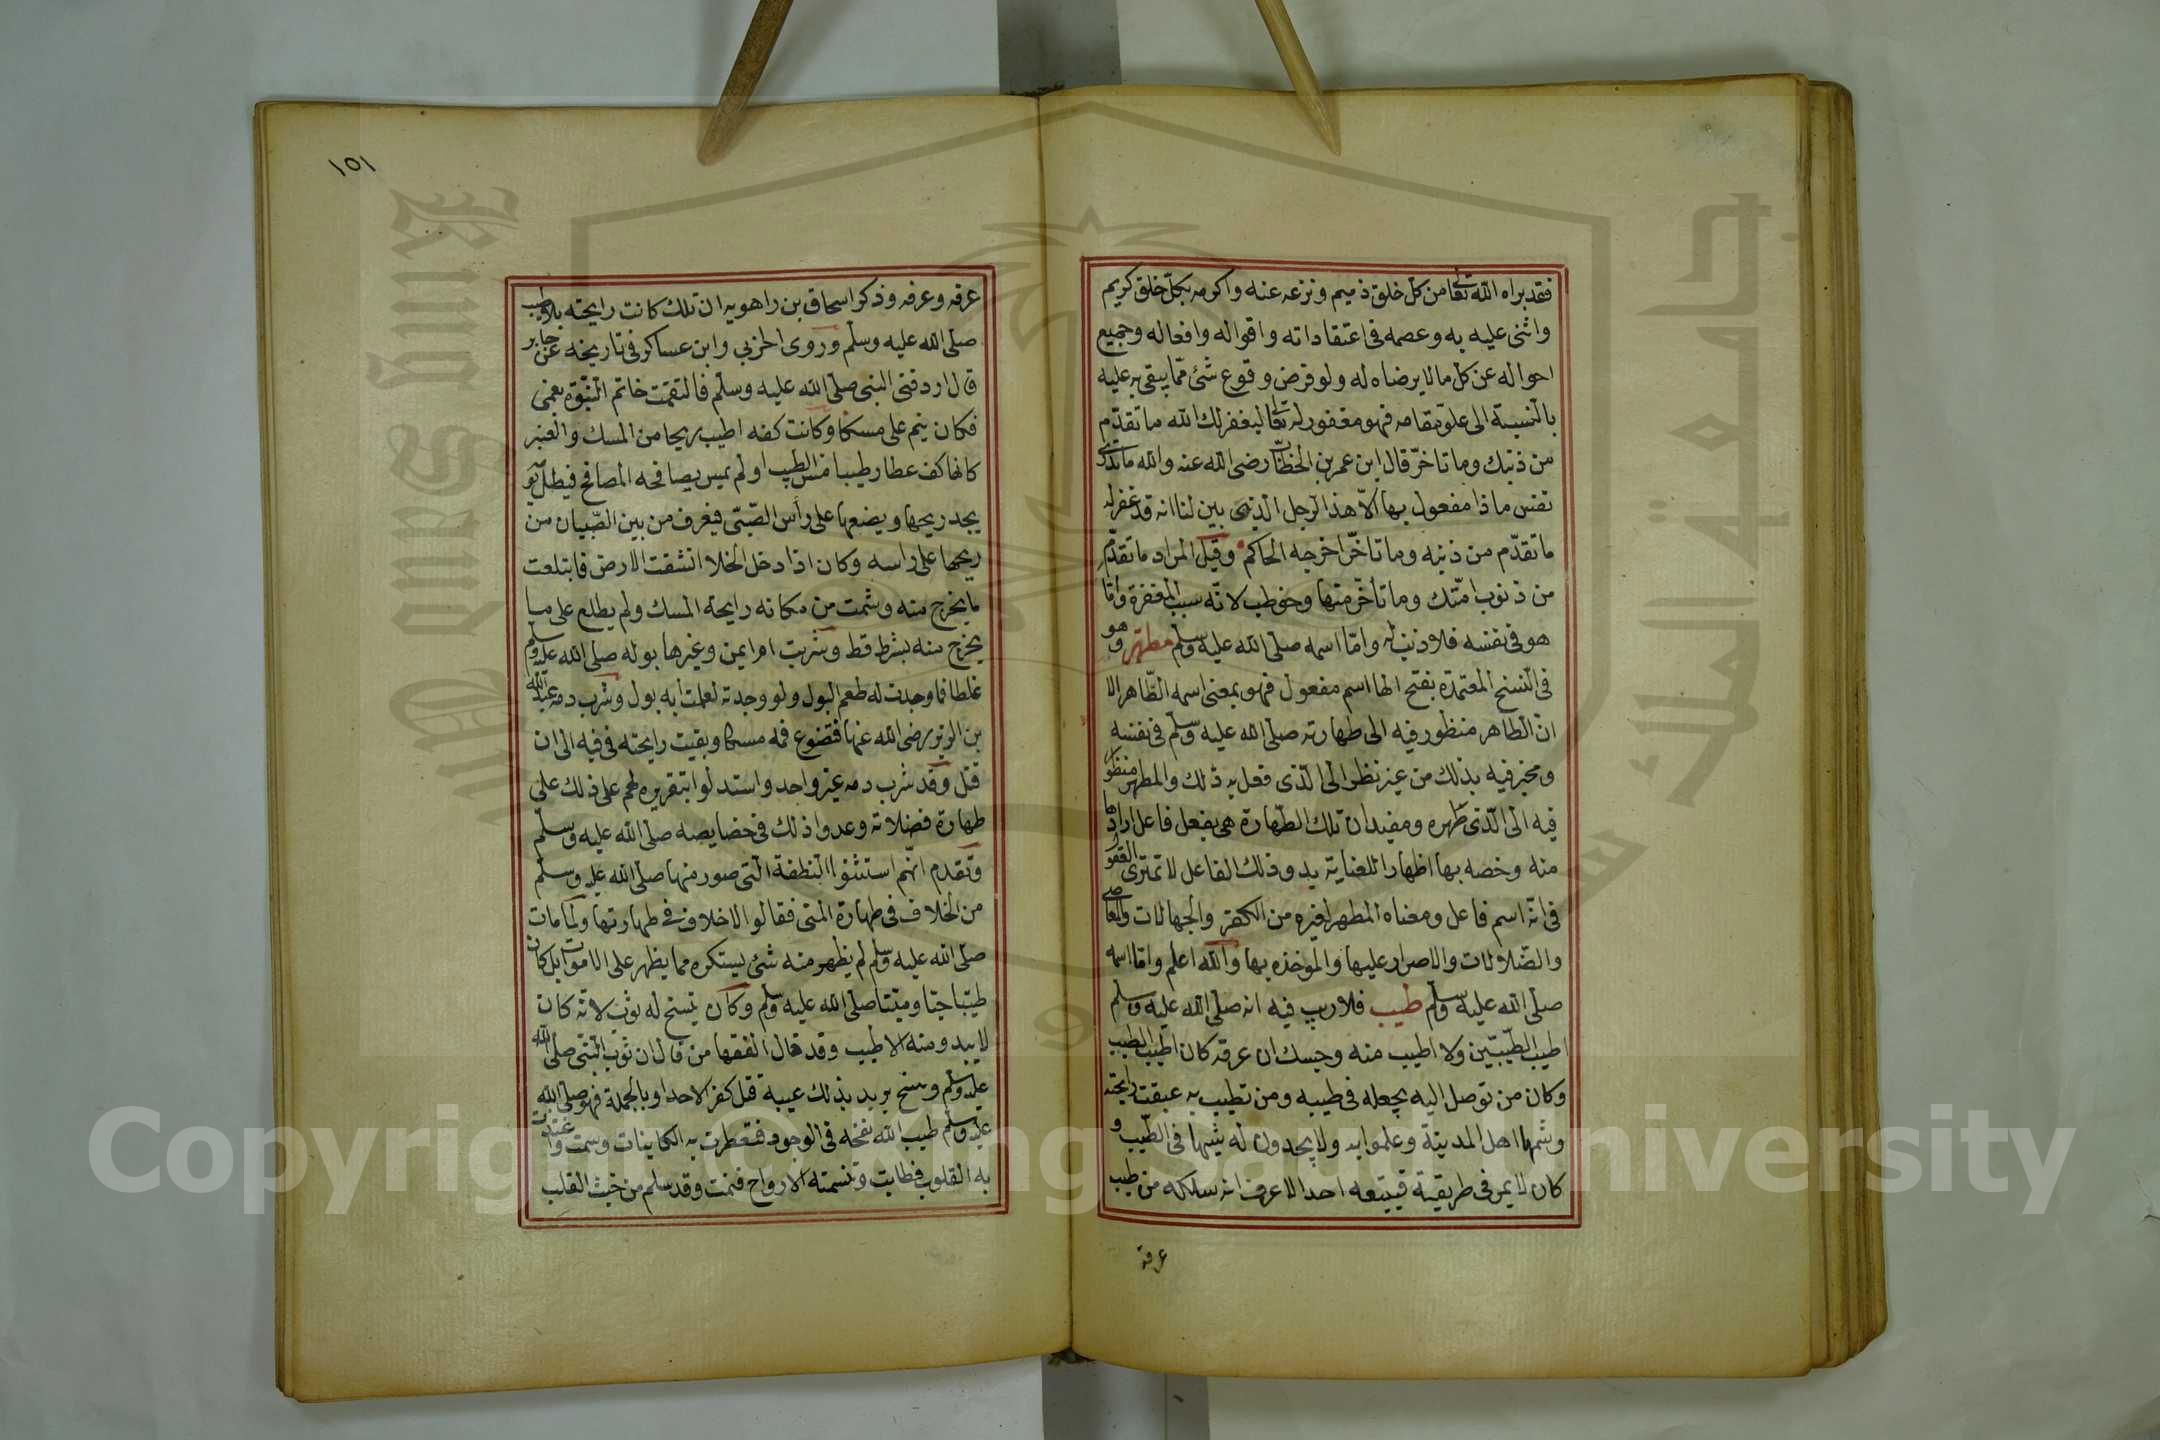 فقد براه الله تعا من كل خلق ذميم ونزعه عنه واكرمه بكل خلق كريم
واثنى عليه به وعصمه فى اعتقاداته واقواله وافعاله وجميع
احواله عن كل ما لا يرضاه له ولو فرض وقوع شئ مما يبقى به عليه
بالنسبة الى علو مقامه فهو مغفور له تعا ليغفر لك الله ما تقدم
من ذنبك وما تاخر قال ابن عمر بن الخطاب رضى الله عنه والله ما تدرى
نفس ماذا مفعول بها الا هذا الرجل الذى بين لنا انه قد غفر له
ما تقدم من ذنبه وما تاخر اخرجه الحاكم وقيل المراد ما تقدم
من ذنوب امتك وما تاخر منها وخوطب لانه سبب المغفرة واما
هو فى نفسه فلا ذنب له واما اسمه صلى الله عليه وسلم مطهر وهو
فى النسخ المعتمدة بفتح الها اسم مفعول فهو بمعنى اسمه الطاهر الا
ان الطاهر منظور فيه الى طهارته صلى الله عليه وسلم فى نفسه
ومخبر فيه بذلك من غير نظر الى الذى فعل به ذلك والمطهر منظور
فيه الى الذى طهره ومفيد ان تلك الطهارة هى بفعل فاعل ارادها
منه وخصه بها اظهارا للعناية به وذلك الفاعل لا تمترى العقول
فى انه اسم فاعل ومعناه المطهر لغيره من الكفر والجهالات والمعاصى
والضلالات والاصرار عليها والمؤخذه بها والله اعلم واما اسمه
صلى الله عليه وسلم طيب فلا ريب فيه انه صلى الله عليه وسلم
اطيب الطيبين ولا اطيب منه وحسبك ان عرقه كان اطيب الطيب
وكان من توصل اليه يجعله فى طيبه ومن تطيب به عبقت رايحته
وشمها اهل المدينة وعلموا به ولا يجدون له شبها فى الطيب و
كان لا يمر فى طريقة فيتبعه احد الا عرف انه سلكه من طيب
عرقه
١٥١
عرقه وعرفه وذكر اسحاق بن راهويه ان تلك كانت رايحته بلا طيب
صلى الله عليه وسلم وروى الحزبي وابن عساكر فى تاريخه عن جابر
قال اردفنى النبى صلى الله عليه وسلم فالتقمت خاتم النبوة بفمى
فكان ينم على مسكا وكانت كفه اطيب ريحا من المسك والعنبر
كانها كف عطار طيبا مس الطيب او لم يمس يصافحه المصافح فيظل يومه
يجد ريحها ويضعها على رأس الصبى فيعرف من بين الصبيان من
ريحها على راسه وكان اذا دخل الخلا انشقت الارض فابتلعت
ما يخرج منه وشمت من مكانه رايحة المسك ولم يطلع على ما
يخرج منه بشر قط وشربت ام ايمن وغيرها بوله صلى الله عليه وسلم
غلطا فما وجدت له طعم البول ولو وجدته لعلمت انه بول وشرب دمه عبد الله
بن الزبير رضى الله عنها فتضوع فمه مسكا وبقيت رايحته فى فيه الى ان
قتل وقد شرب دمه غير واحد واستدلوا بتقريره لهم على ذلك على
طهارة فضلاته وعدوا ذلك فى خصايصه صلى الله عليه وسلم
وتقدم انهم استثنوا النطفة التى صور منها صلى الله عليه وسلم
من الخلاف فى طهارة المنى فقالوا لا خلاف فى طهارتها ولما مات
صلى الله عليه وسلم لم يظهر منه شئ يستكره مما يظهر على الاموات بل كان
طيبا حيا وميتا صلى الله عليه وسلم وكان يتسخ له ثوب لانه كان
لا يبدو منه الا طيب وقد قال الفقها من قال ان ثوب النبى صلى الله
عليه وسلم وسخ يريد بذلك عيبه قتل كفرا لا حدا وبالجملة فهو صلى الله
عليه وسلم طيب الله نفحه فى الوجود فتعطرت به الكاينات وسمت واغتذت
به القلوب فطابت وتنسمته الارواح فنمت وقد سلم من خبث القلب